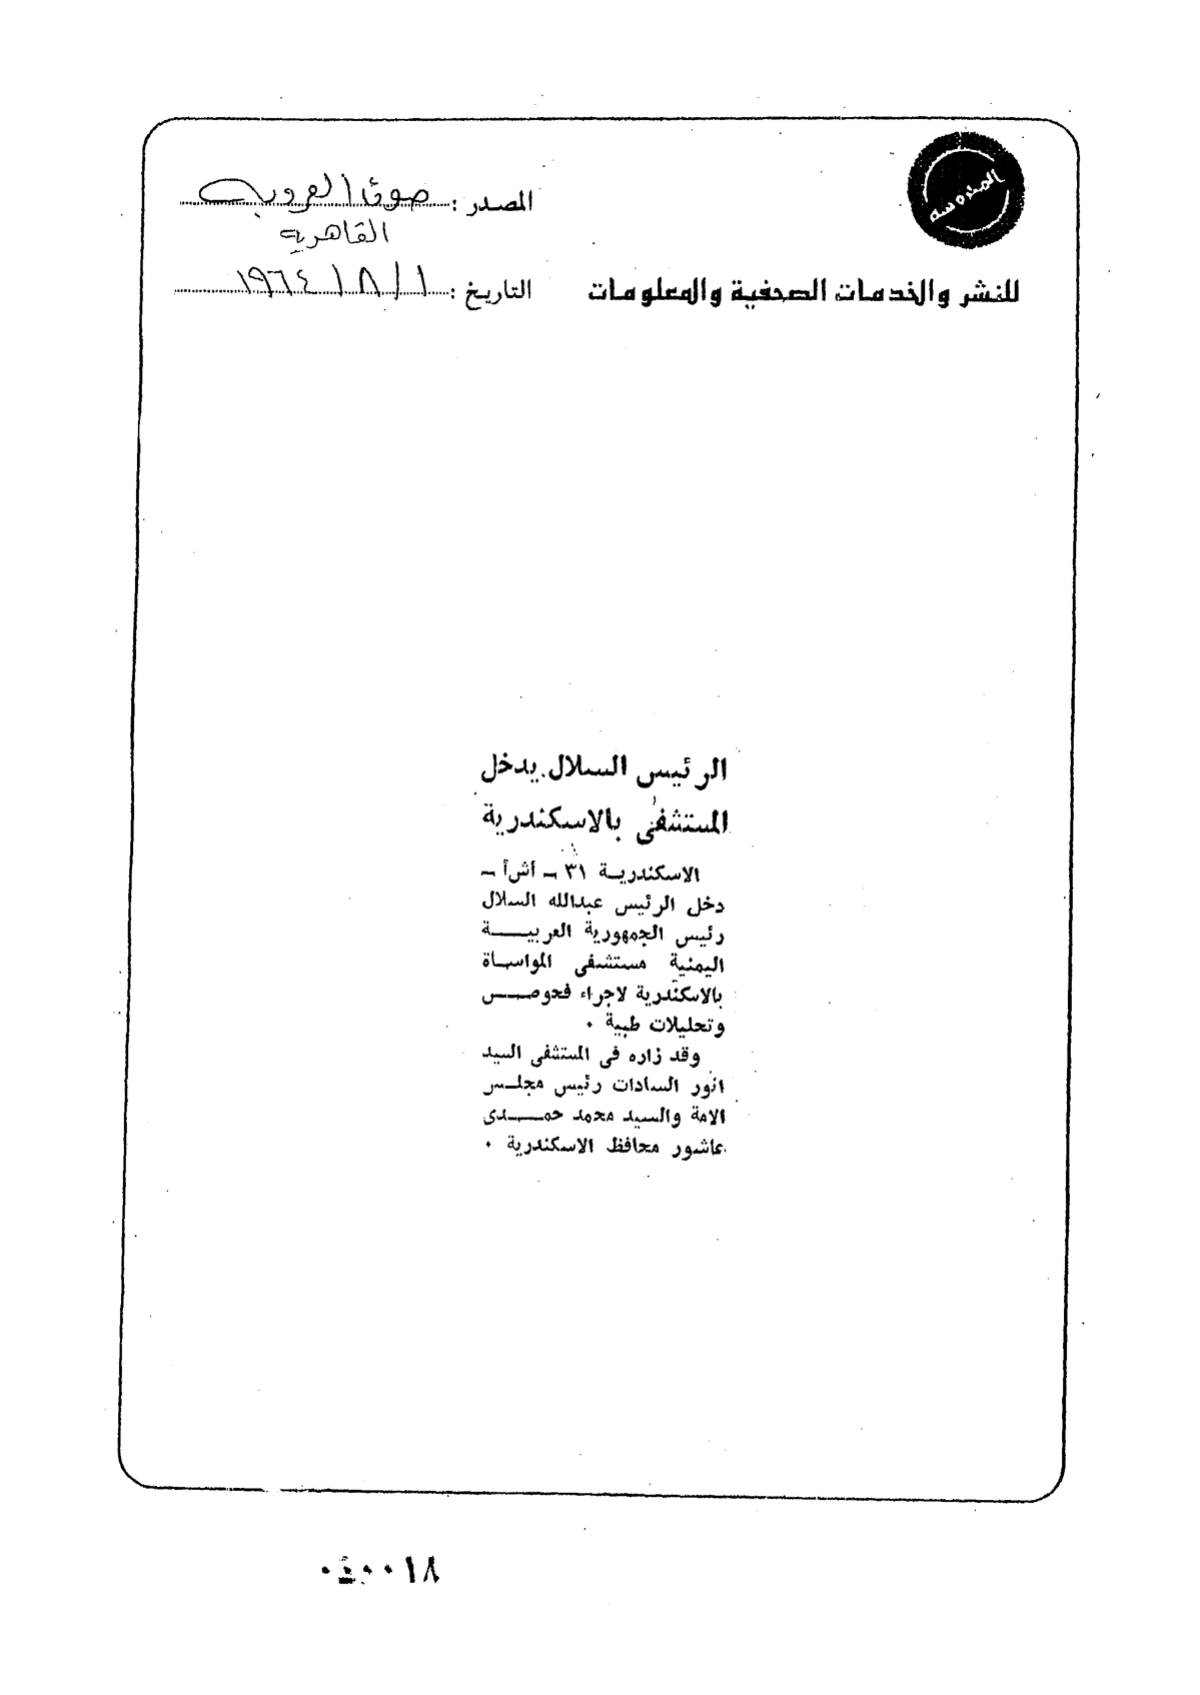 المحروسة
للنشر والخدمات الصحفية والمعلومات
المصدر : صوت العروبة
القاهرية
التاريخ : ١ / ٨ / ١٩٦٤
الرئيس السلال يدخل
المستشفى بالاسكندرية
الاسكندرية ٣١ - أشأ -
دخل الرئيس عبدالله السلال
رئيس الجمهورية العربية
اليمنية مستشفى المواساة
بالاسكندرية لاجراء فحوص
وتحليلات طبية .
وقد زاره فى المستشفى السيد
انور السادات رئيس مجلس
الامة والسيد محمد حمدى
عاشور محافظ الاسكندرية .